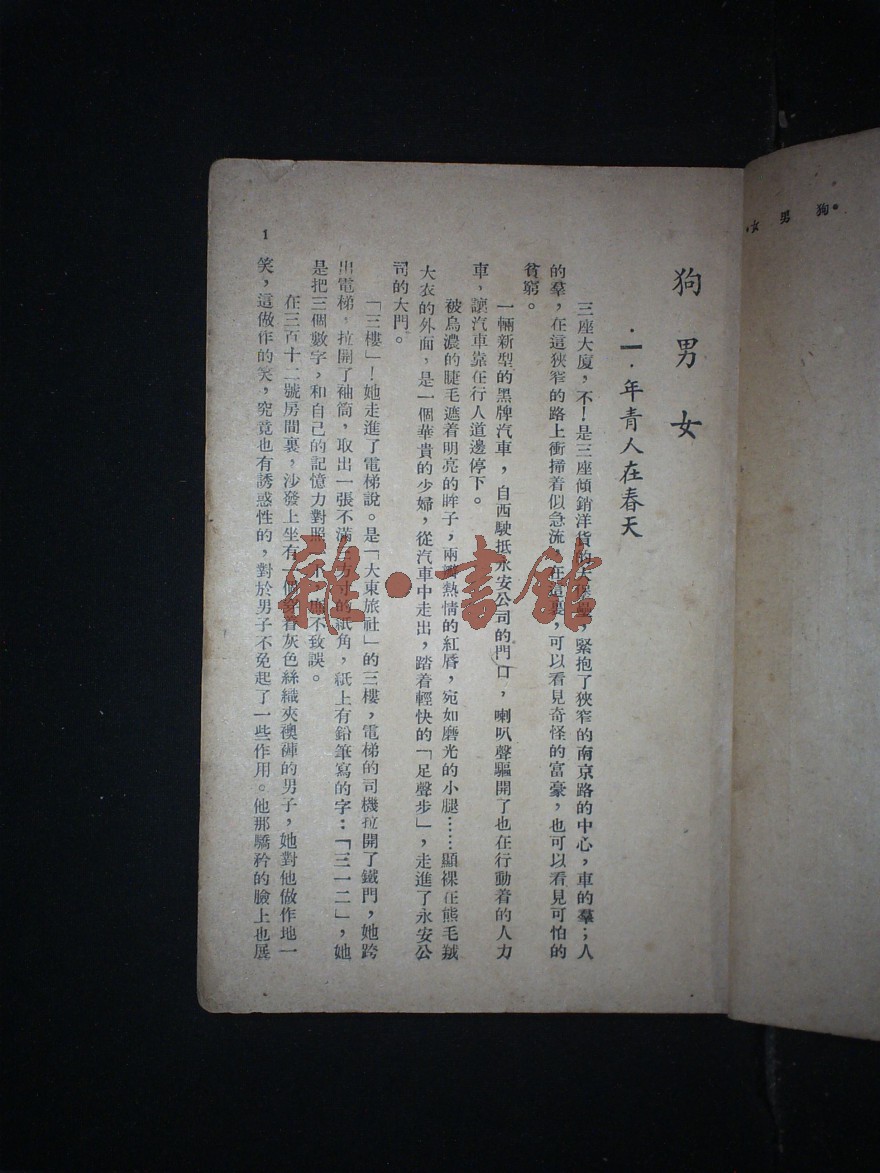 狗男女。
狗男女
·一·年青人在春天
三座大厦，不！是三座傾銷洋貨的大，緊抱了狹窄的南京路的中心，車的羣；人
的羣，在這狹窄的路上衝掃着似急流，在這裏，可以看見奇怪的富豪，也可以看見可怕的
貧窮。
一輛新型的黑牌汽車，自西駛抵永安公司的門口，喇叭聲驅開了也在行動着的人力
車，讓汽車靠在行人道邊停下。
被烏濃的睫毛遮着明亮的眸子，兩瓣熱情的紅唇，宛如磨光的小腿……顯裸在熊毛羢
大衣的外面，是一個華貴的少婦，從汽車中走出，踏着輕快的「足聲步」，走進了永安公
司的大門。
「三樓」！她走進了電梯說。是「大東旅社」的三樓，電梯的司機拉開了鐵門，她跨
出電梯，拉開了袖筒，取出一張不滿方寸的紙角，紙上有鉛筆寫的字：「三一二」，她
是把三個數字，和自己的記憶力對照，不致誤。
在三百十二號房間裏，沙發上坐有一個穿着灰色絲織夾襖褲的男子，她對他做作地一
笑，這做作的笑，究竟也有誘惑性的，對於男子不免起了一些作用。他那驕矜的臉上也展
1
雜·書館